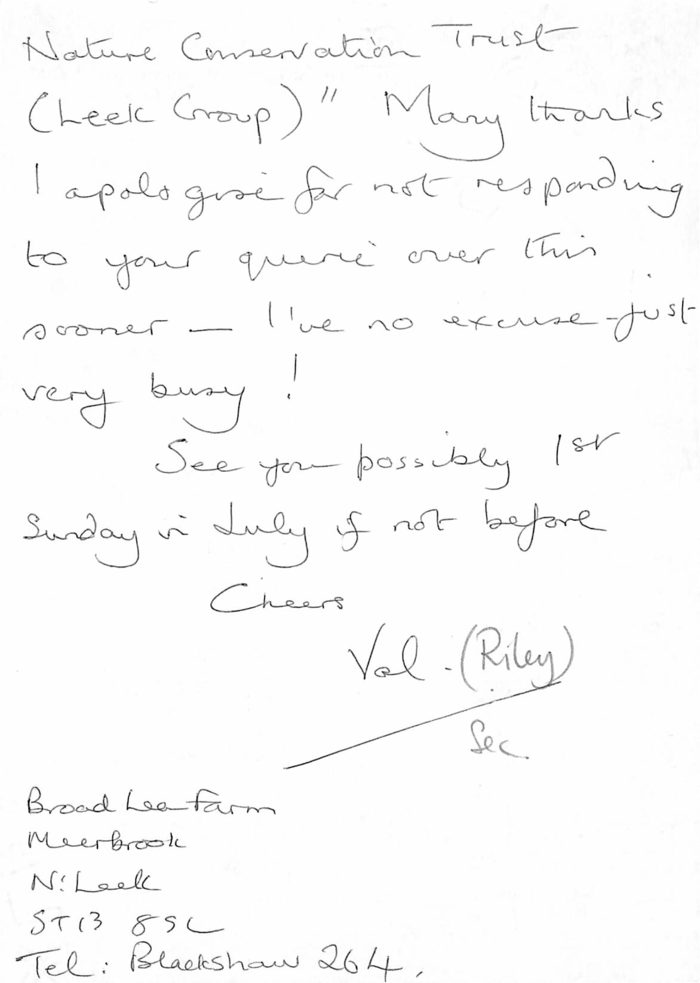 Nature Conservation Trust
(Leek Group)" Many thanks
I apologise for not responding
to your querie over this
sooner — I've no excuse - just
very busy!
See you possibly 1st
Sunday in July if not before
Cheers
Val. (Riley)
Sec.
Broad Lea Farm
Meerbrook
Nr. Leek
ST13 8SL
Tel: Blackshaw 264.